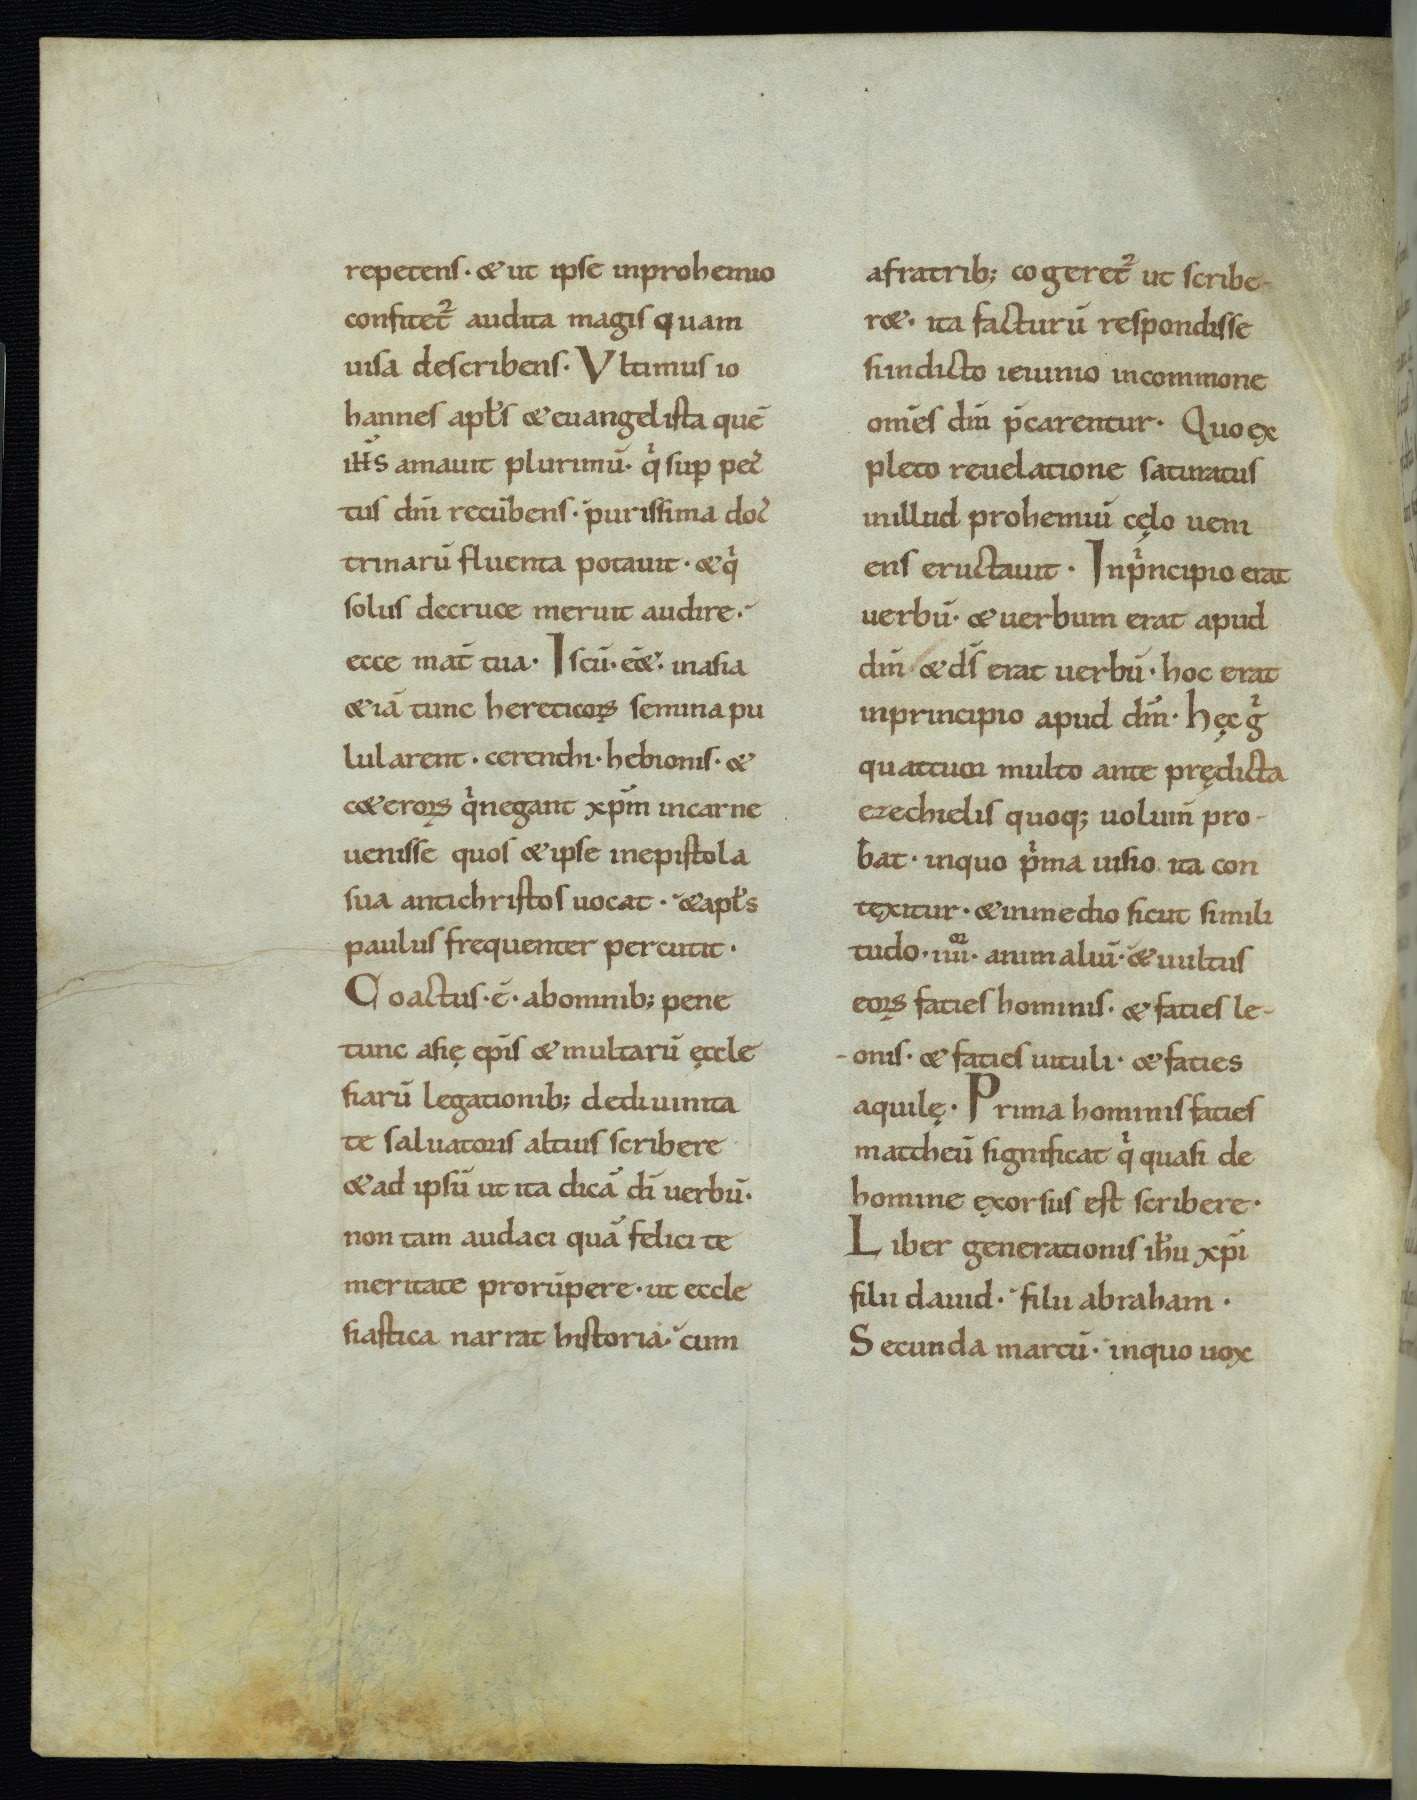 repetens· & ut ipse inprohemio
confitet᷑ audita magis quam
uisa describens· Vltimus io
hannes apƚs & euangelista quē
ih̄s amauit plurimū· qͥ sup pec
tus dn̄i recūbens· purissima doc
trinarū fluenta potauit· & qͥ
solus decruce meruit audire·
ecce mat̄ tua· Is cū· ēē&· inasia
& iā tunc hereticoꝝ semina pu
lularent· cerenthi· hebionis· &
c&eroꝝ qͥ negant xp̄m incarne
uenisse quos & ipse inepistola
sua antichristos uocat· & apƚs
paulus frequenter percutit·
Coactus· ē· abomnib; pene
tunc asię ep̄is & multarū ęccle
siarū legationib; dediuinita
te saluatoris altius scribere
& ad ipsū ut ita dicā dī uerbū·
non tam audaci quā felici te
meritate prorūpere· ut eccle
siastica narrat historia· cum
afratrib; cogeret᷑ ut scribe-
r&· ita facturū respondisse
siindicto ieiunio incommone
om̄es dm̄ p̄carentur· Quo ex
pleto reuelatione saturatus
inillud prohemiū cęlo ueni
ens eructauit· Inpͥncipio erat
uerbū· & uerbum erat apud
dm̄ & ds̄ erat uerbū· hoc erat
inprincipio apud dm̄· hęc gͥ
quattuor multo ante prędicta
ezechielis quoq; uolum̄ pro-
bat· inquo pͥma uisio ita con
texitur· & inmedio sicut simili
tudo· iiii͛oꝛ· animaliū· & uultus
eoꝝ faties hominis· & faties le-
-onis· & faties uituli· & faties
aquilę· Prima hominis faties
mattheū significat qͥ quasi de
homine exorsus est scribere·
Liber generationis ih̄u xp̄i
filii dauid· filii abraham·
Secunda marcū· inquo uox